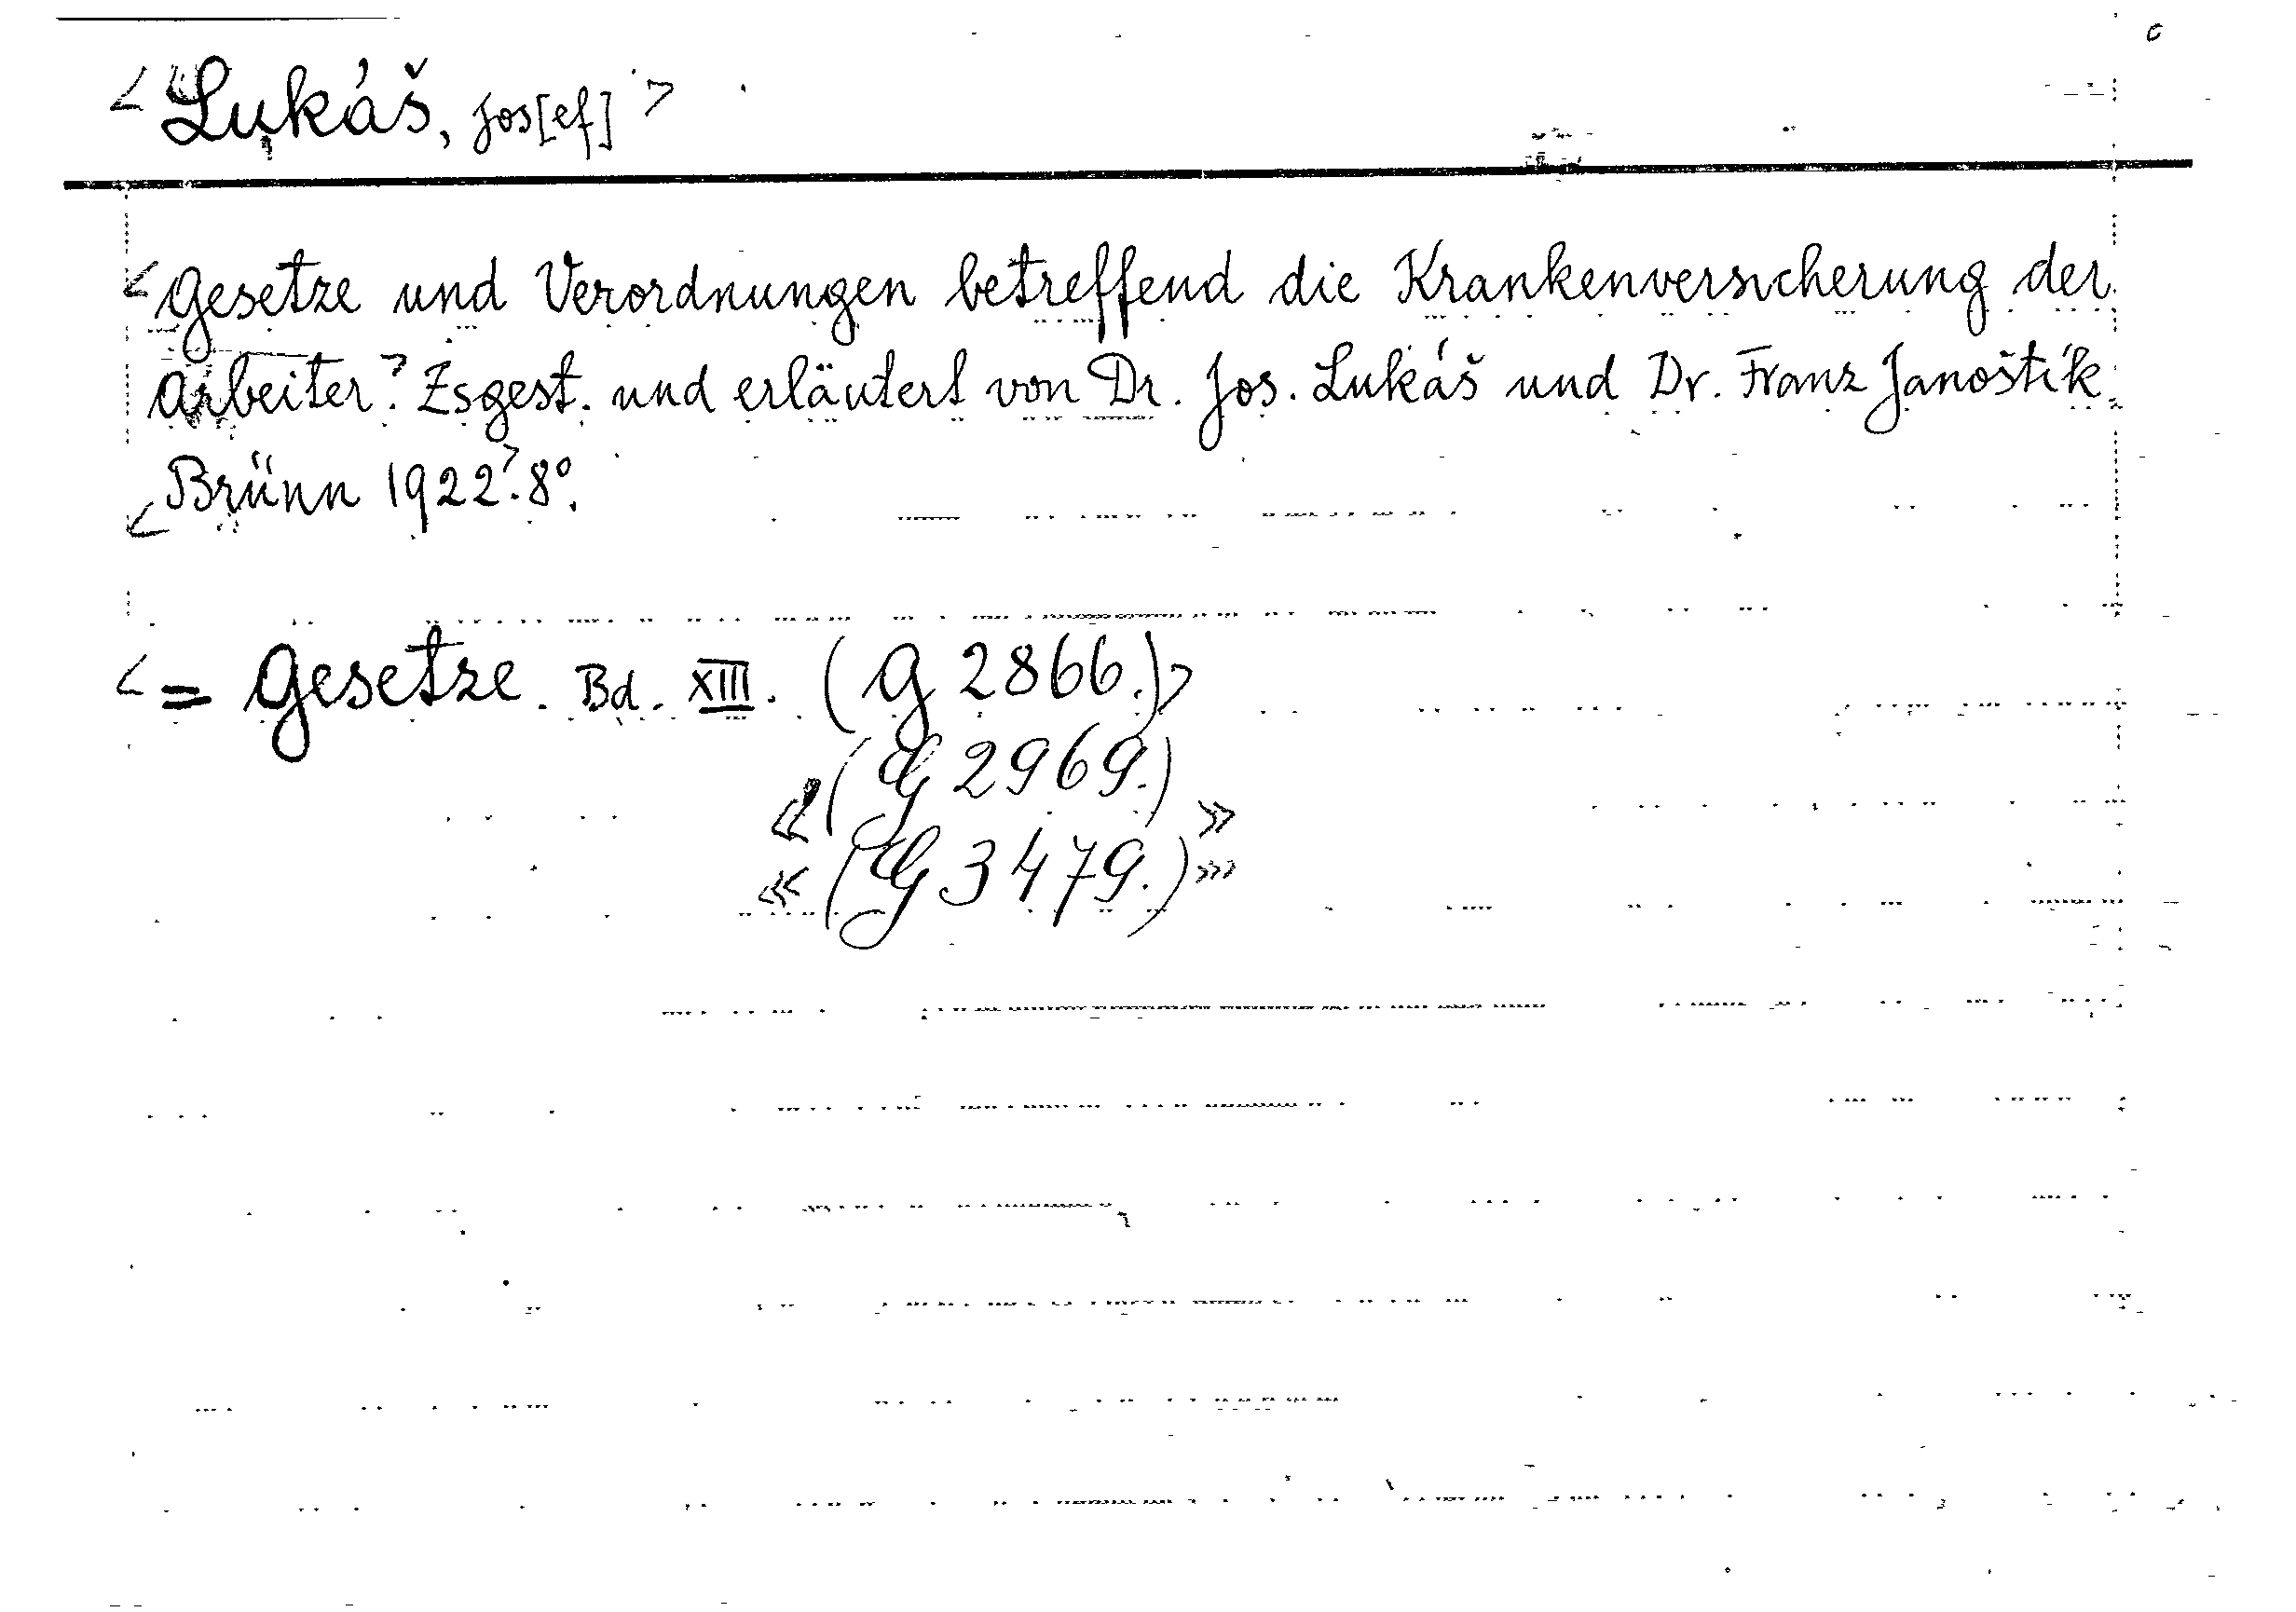 < Lukáš, Jos[ef] >
< Gesetze und Verordnungen betreffend die Krankenversicherung der
Arbeiter.> Zsgest. und erläutert von Dr. Jos. Lukáš und Dr. Franz Janoštík.
< Brünn 1922>. 8°.
< = Gesetze. Bd. XIII. (G 2866.)>
«(G 2969.)»
«(G 3479.)»»